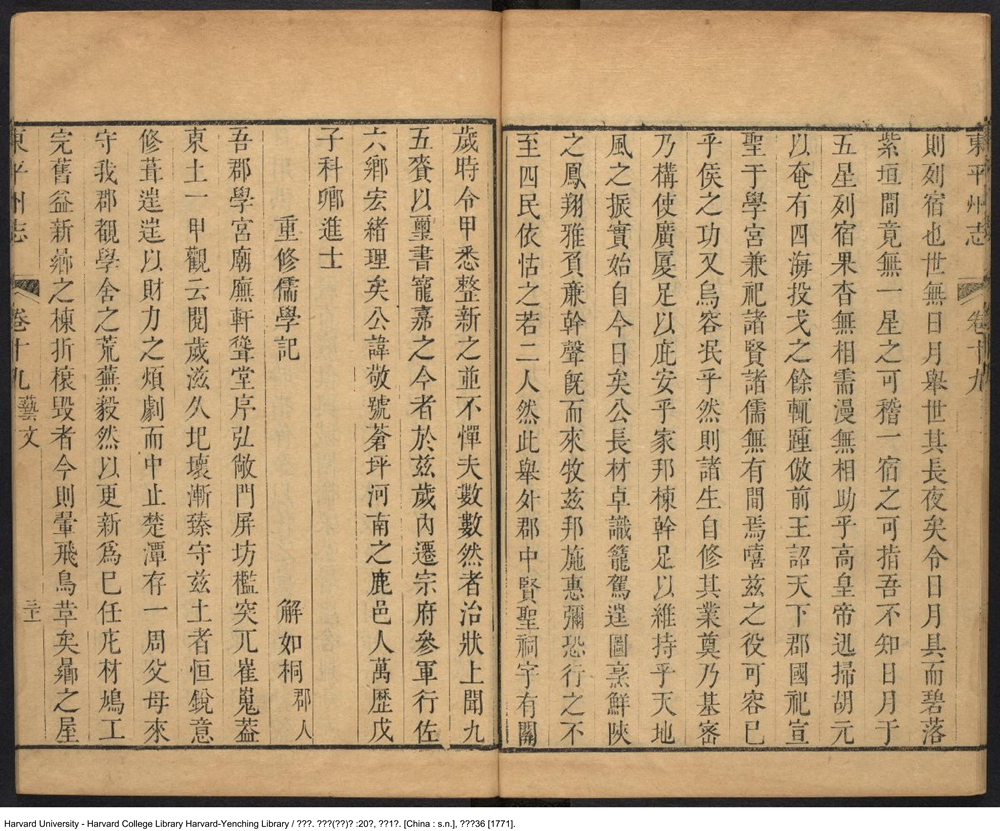 東平州志 卷十九
則列宿也世無日月舉世其長夜矣令日月具而碧落
紫垣間竟無一星之可稽一宿之可指吾不知日月于
五星列宿果杳無相需漫無相助乎高皇帝迅掃胡元
以奄有四海投戈之餘輒踵倣前王詔天下郡國祀宣
聖于學宮兼祀諸賢諸儒無有間焉嘻茲之役可容已
乎侯之功又烏容泯乎然則諸生自修其業奠乃基密
乃構使廣厦足以庇安乎家邦棟幹足以維持乎天地
風之振實始自今日矣公長材卓識籠駕遑圖烹鮮陝
之鳳翔雅負亷幹聲旣而來牧茲邦施惠彌恐行之不
至四民依怙之若二人然此舉外郡中賢聖祠宇有關
歲時令甲悉整新之並不憚夫數數然者治狀上聞九
五賚以璽書寵嘉之今者於茲歲內遷宗府參軍行佐
六鄉宏緒理矣公諱敬號蒼坪河南之鹿邑人萬歷戊
子科鄉進士
重修儒學記
解如桐 郡人
吾郡學宮廟廡軒聳堂序弘敞門屏坊檻突兀崔嵬葢
東土一甲觀云閱歲滋久圮壞漸臻守茲土者恒銳意
修葺遑遑以財力之煩劇而中止楚潭存一周父母來
守我郡覩學舍之荒蕪毅然以更新爲巳任庀材鳩工
完舊益新曏之棟折榱毀者今則翬飛鳥革矣曏之屋
東平州志 卷十九 藝文 三十
Harvard University - Harvard College Library Harvard-Yenching Library / ???. ???(??)? :20?, ??1?. [China : s.n.], ???36 [1771].